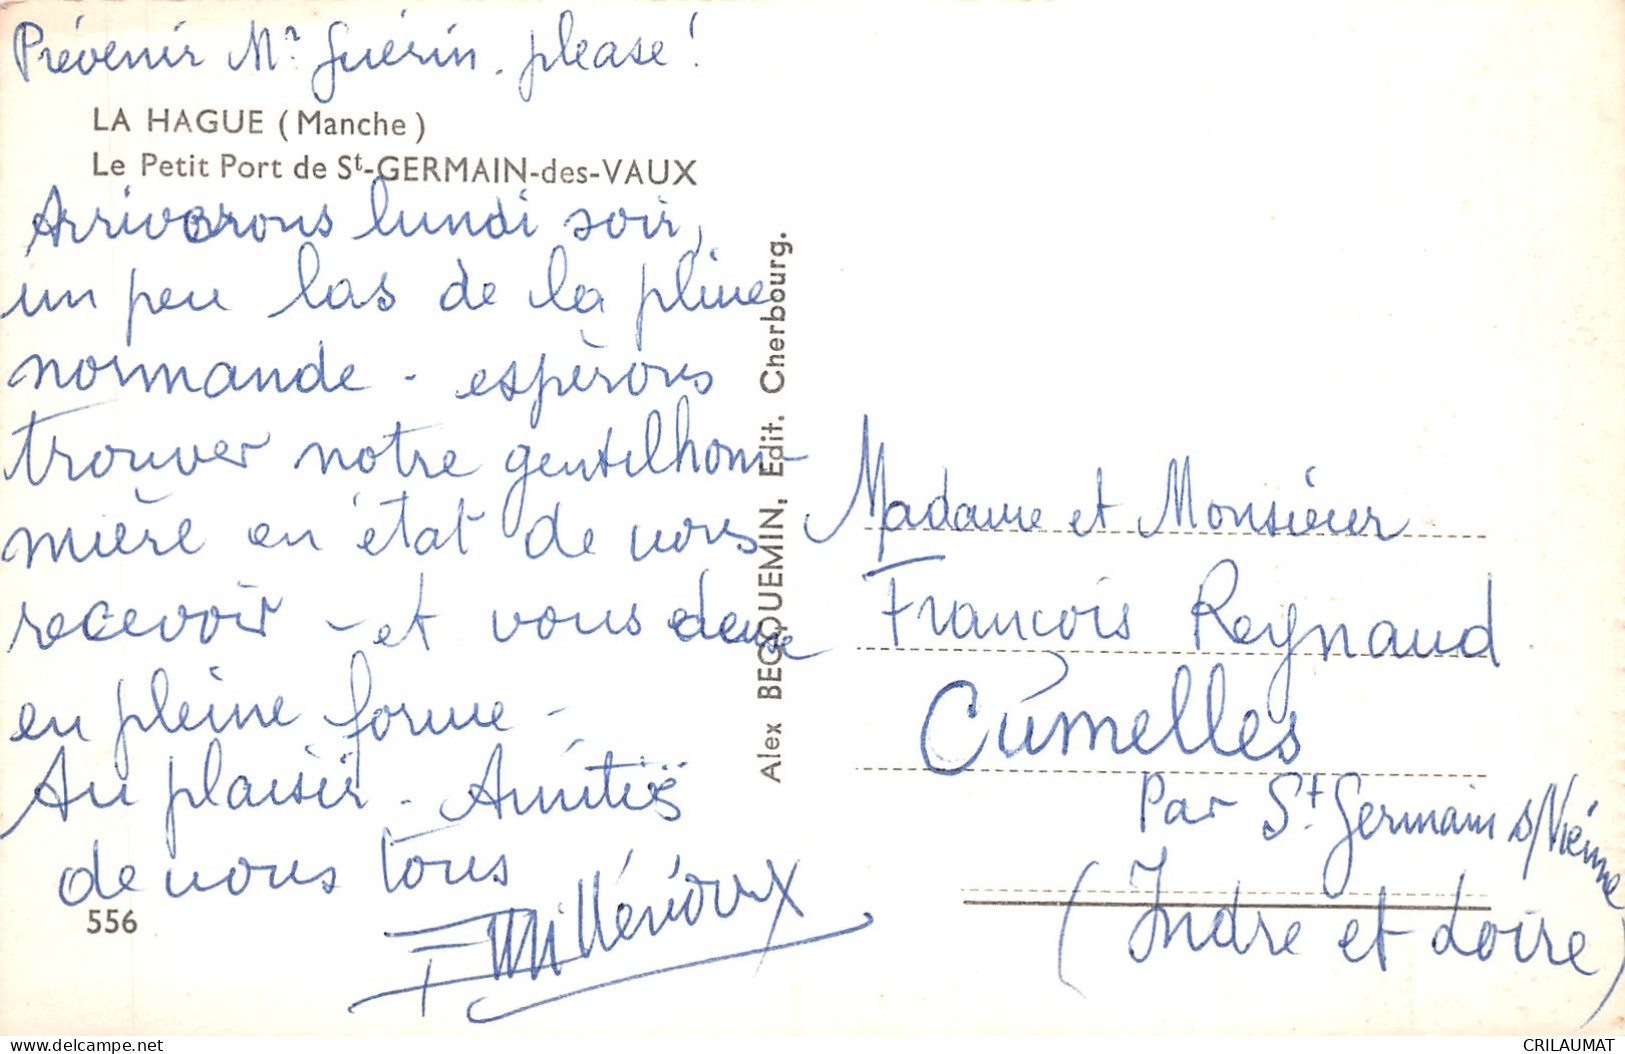 Prévenir Mr Guérin. please!
LA HAGUE (Manche)
Le Petit Port de St-GERMAIN-des-VAUX
Arriverons lundi soir,
un peu las de la pluie
normande - espèrons
trouver notre gentilhom-
mière en état de nous
recevoir - et vous deux
en pleine forme -
Au plaisir. Amitiés
de nous tous
556
Alex BECQUEMIN, Edit. Cherbourg.
Madame et Monsieur
François Reynaud
Cumelles
Par St. Germain s/Vienne
(Indre et Loire)
delcampe.net
CRILAUMAT